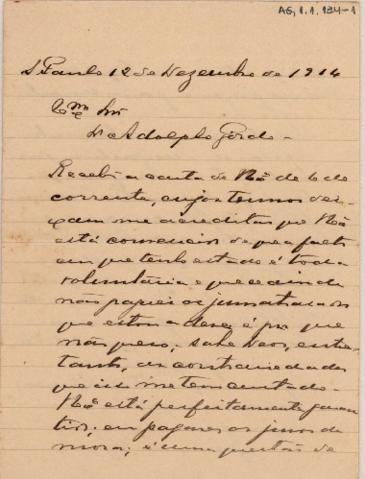 AG, 1.1.134-1
S. Paulo 12 de Dezembro de 1914
Exmo. Snr.
Dr. Adolpho Gordo -
Recebi a carta de V. de 6 do
corrente, cujos termos dei-
xam me acreditar que V.
está convencido de que a falta
em que tenho estado é toda
voluntaria e que ainda
não paguei os juros
que estou a dever é por que
não quero; sabe Deus, entre-
tanto, as contrariedades
que isso me tem custado.
V. está perfeitamente garan-
tido; eu pagarei os juros de
móra; é uma questão de